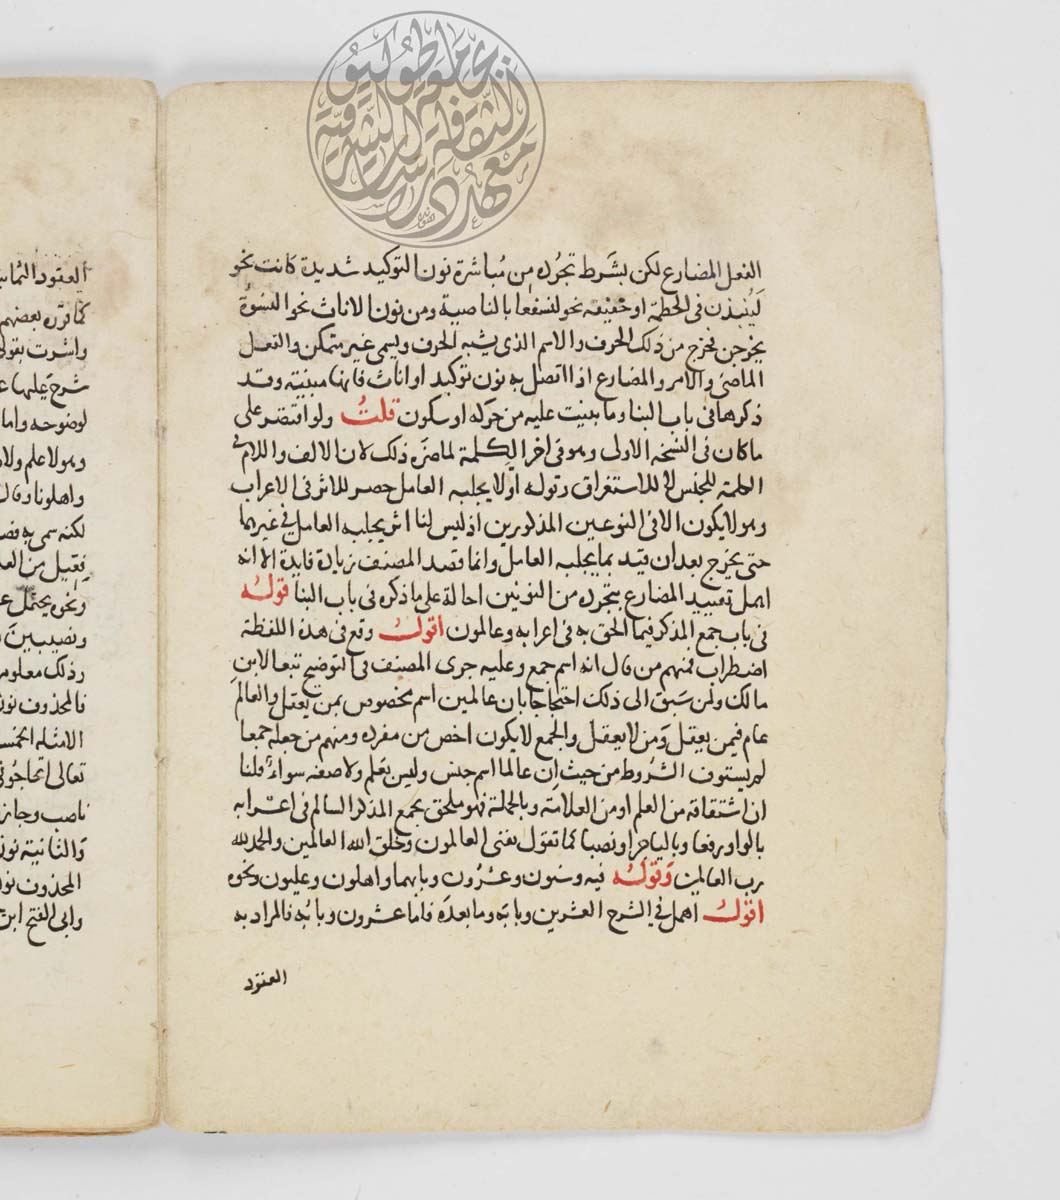 الفعل المضارع لكن بشرط تجرده من مباشرة نون التوكيد شديدة كانت نحو
لينبذن في الحطمة او خفيفة نحو لنسفعا بالناصية ومن نون الاناث نحو النسوة
يخرجن فخرج من ذلك الحرف والاسم الذي يشبه الحرف ويسمى غير متمكن والفعل
الماضي والامر والمضارع اذا اتصل به نون توكيد او اناث فانها مبنية وقد
ذكرها في باب البنا وما بنيت عليه من حركة او سكون قلت ولو اقتصر على
ما كان في النسخة الاولى وهو في اخر الكلمة لما ضره ذلك لان الالف واللام في
الكلمة للجنس لا للاستغراق وقوله او لا يجلبه العامل حصر للاثر في الاعراب
وهو لا يكون الا في النوعين المذكورين اذ ليس لنا اثر يجلبه العامل في غيرهما
حتى يخرج بعد ان قيد بما يجلبه العامل وانما قصد المصنف زيادة فايدة الا انه
اهمل تقييد المضارع بتجرده من النونين احالة على ما ذكره في باب البنا قوله
في باب جمع المذكر فيما الحق به في اعرابه وعالمون اقول وقع في هذه اللفظة
اضطراب فمنهم من قال انه اسم جمع وعليه جرى المصنف في التوضيح تبعا لابن
مالك ولمن سبق الى ذلك احتجاجا بان عالمين اسم مخصوص بمن يعقل والعالم
عام فيمن يعقل ومن لا يعقل والجمع لا يكون اخص من مفرده ومنهم من جعله جمعا
لم يستوف الشروط من حيث ان عالما اسم جنس وليس بعلم ولا صفة سواء قلنا
ان اشتقاقه من العلم او من العلامة وبالجملة فهو ملحق بجمع المذكر السالم في اعرابه
بالواو رفعا وباليا جرا ونصبا كما تقول يفنى العالمون وخلق الله العالمين والحمد لله
رب العالمين وقوله فيه وسنون وعشرون وبابهما واهلون وعليون ونحوه
اقول اهمل في الشرح العشرين وبابه وما بعده فاما عشرون وبابه فالمراد به
العقود
العقود الثمانية
كما قرره بعضهم
واشرت بقولي
شرح عليها
لوضوحه واما
وهو لا علم ولا
واهلونا وقال
لكنه سمي به
فقيل من
ونحن يحتمل
ونصيبين
ذلك معلوم
فالمحذوف نون
الامثلة الخمسة
تعالى اتحاجوني
ناصب وجازم
والثانية نون
المحذوف نون
وابي الفتح ابن